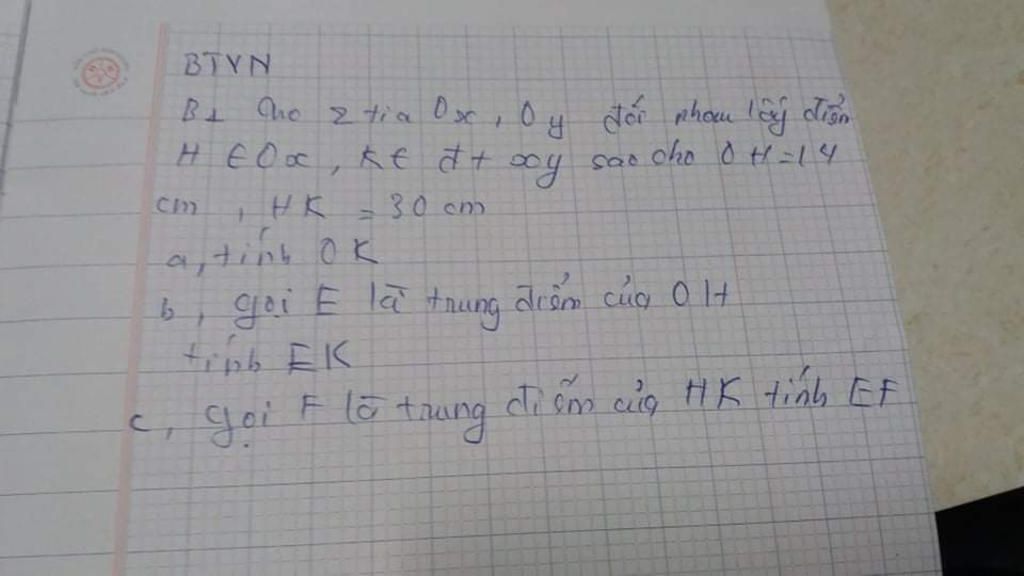 BTVN
B1 Cho 2 tia Ox, Oy đối nhau lấy điểm
H ∈ Ox, K ∈ đt xy sao cho OH = 14
cm, HK = 30 cm
a, tính OK
b, gọi E là trung điểm của OH
tính EK
c, gọi F là trung điểm của HK tính EF